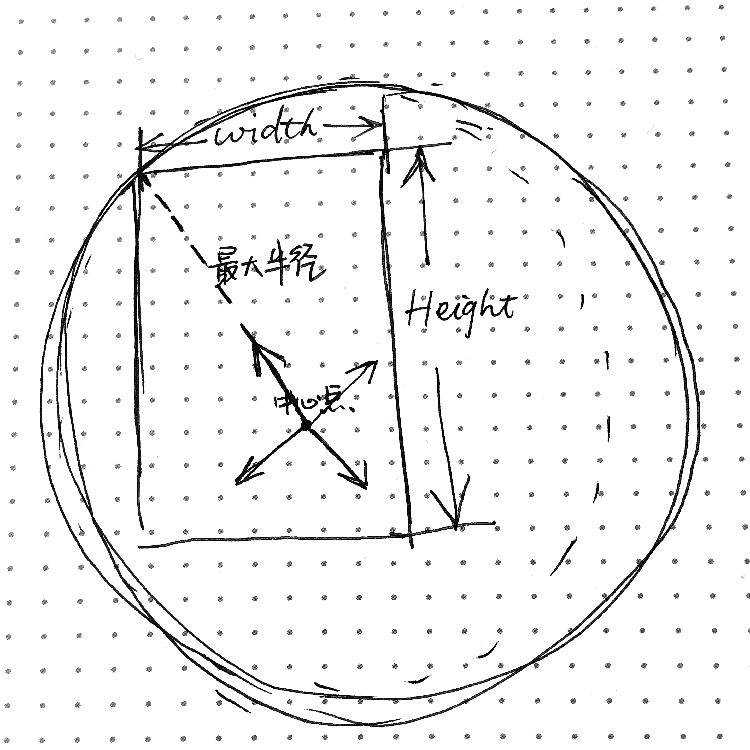 width
最大半径
Height
中心点